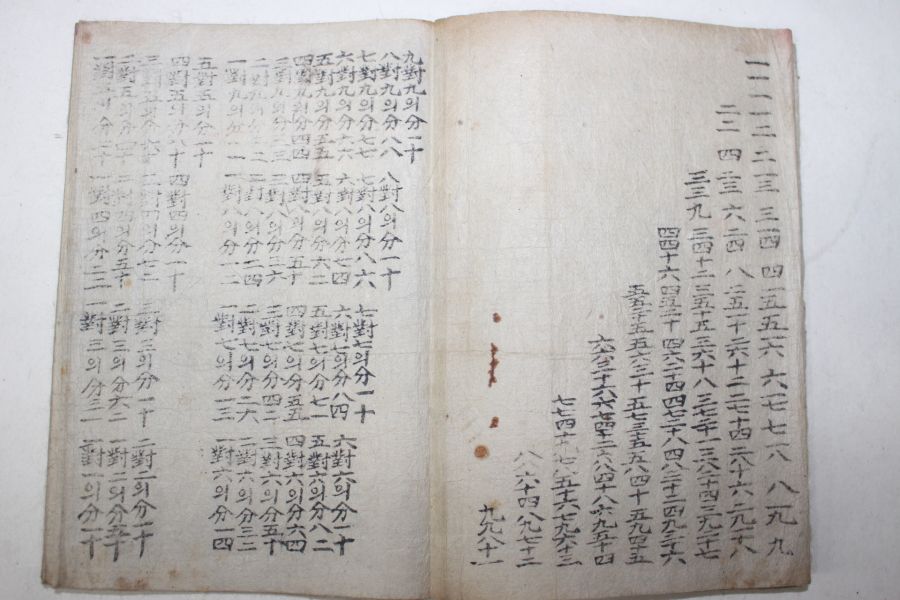 一一一一二二一三三一四四一五五一六六一七七一八八一九九
二二四二三六二四八二五一十二六十二二七十四二八十六二九十八
三三九三四十二三五十五三六十八三七二十一三八二十四三九二十七
四四十六四五二十四六二十四四七二十八四八三十二四九三十六
五五二十五五六三十五七三十五五八四十五九四十五
六六三十六六七四十二六八四十八六九五十四
七七四十九七八五十六七九六十三
八八六十四八九七十二
九九八十一
九對九의分一十
八對九의分八八
七對九의分七七
六對九의分六六
五對九의分五五
四對九의分四四
三對九의分三三
二對九의分二二
一對九의分一一
八對八의分一十
七對八의分八六
六對八의分七四
五對八의分六二
四對八의分五十
三對八의分三六
二對八의分二四
一對八의分一二
七對七의分一十
六對七의分八四
五對七의分七一
四對七의分五五
三對七의分四二
二對七의分二六
一對七의分一三
六對六의分一十
五對六의分八二
四對六의分六四
三對六의分五十
二對六의分三二
一對六의分一四
五對五의分一十
四對五의分八十
三對五의分六十
二對五의分四十
一對五의分二十
四對四의分一十
三對四의分七二
二對四의分五十
一對四의分二三
三對三의分一十
二對三의分六二
一對三의分三一
二對二의分一十
一對二의分五十
一對一의分一十